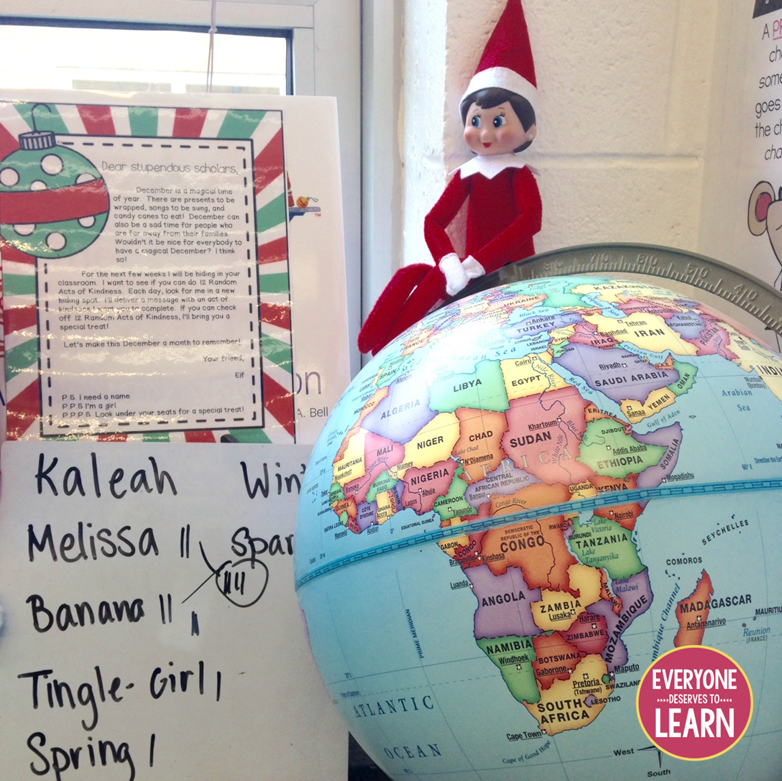 Dear stupendous scholars,
December is a magical time
of year. There are presents to be
wrapped, songs to be sung, and
candy canes to eat! December can
also be a sad time for people who
are far away from their families.
Wouldn't it be nice for everybody to
have a magical December? I think
so!
For the next few weeks I will be hiding in your
classroom. I want to see if you can do 12 Random
Acts of Kindness. Each day, look for me in a new
hiding spot. I'll deliver a message with an act of
kindness I want you to complete. If you can check
off 12 Random Acts of Kindness, I'll bring you a
special treat!
Let's make this December a month to remember!
Your friend,
Elf
P.S. I need a name
P.P.S I'm a girl
P.P.P.S. Look under your seats for a special treat!
A. Bell
Kaleah
Melissa ||
Banana ||
Tingle-Girl |
Spring |
UKRAINE
KAZAKHSTAN
Black Sea
Ankara
TURKEY
Tehran
IRAN
IRAQ
Cairo
LIBYA
EGYPT
Riyadh
SAUDI ARABIA
OMAN
Red Sea
Arabian
Sea
ALGERIA
YEMEN
Sanaa
Gulf of Aden
MAURITANIA
MALI
NIGER
CHAD
Khartoum
SUDAN
ERITREA
DJIBOUTI
Niamey
N'Djamena
AFRICA
Addis Ababa
ETHIOPIA
SOMALIA
NIGERIA
Abuja
CENTRAL
AFRICAN REPUBLIC
Mogadishu
CAMEROON
UGANDA
KENYA
Nairobi
GABON
DEMOCRATIC
REPUBLIC OF THE
CONGO
Kinshasa
TANZANIA
Lake
Tanganyika
SEYCHELLES
Luanda
COMOROS
ANGOLA
Lake
Malawi
ZAMBIA
Lusaka
MOZAMBIQUE
MADAGASCAR
Antananarivo
Harare
ZIMBABWE
Réunion
(FRANCE)
NAMIBIA
Windhoek
BOTSWANA
Gaborone
Maputo
Pretoria
(Tshwane)
SWAZILAND
LESOTHO
SOUTH
AFRICA
Cape Town
Cape of Good Hope
PRIME MERIDIAN
ATLANTIC
OCEAN
West
South
A
some
goes
the ch
EVERYONE
DESERVES TO
LEARN